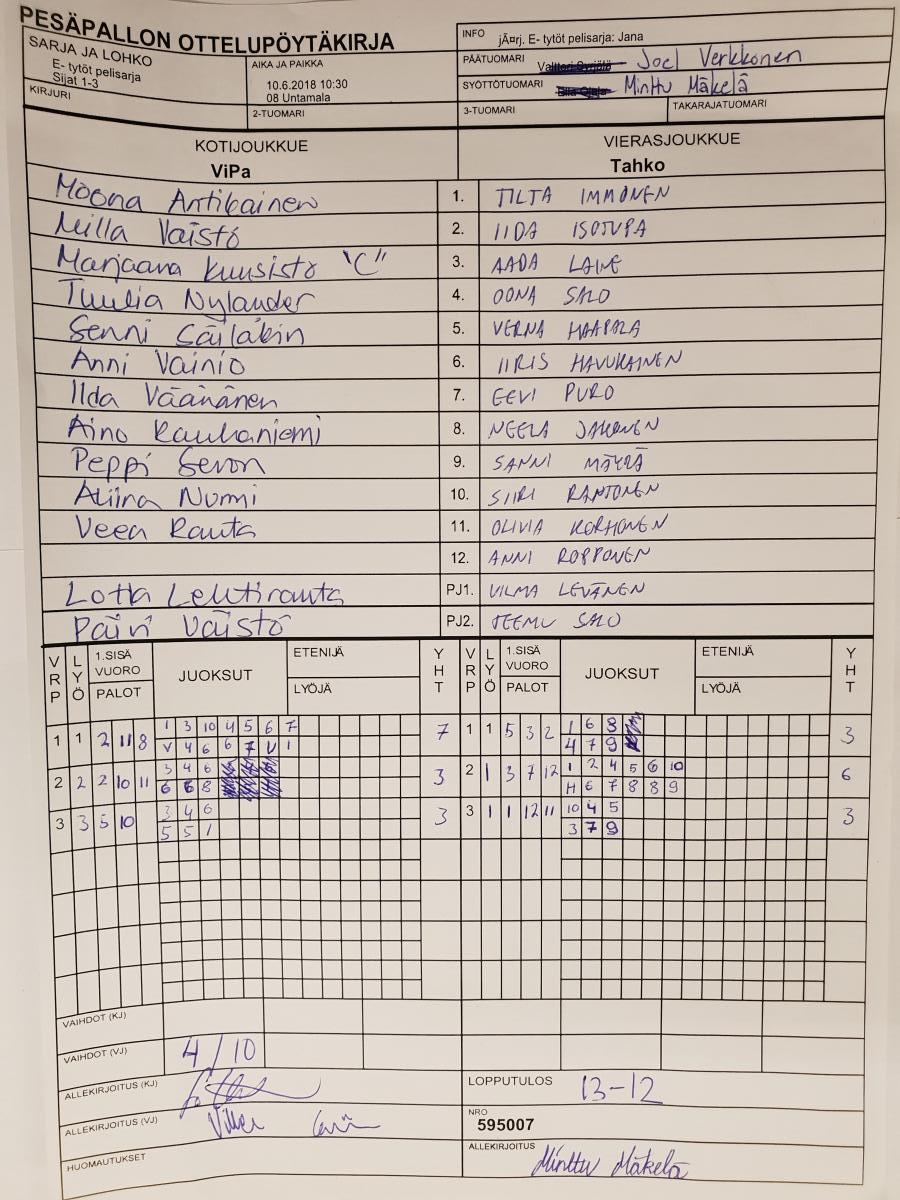 PESÄPALLON OTTELUPÖYTÄKIRJA
SARJA JA LOHKO
E- tytöt pelisarja
Sijat 1-3
AIKA JA PAIKKA
10.6.2018 10:30
08 Untamala
KIRJURI
2-TUOMARI
INFO jÃ¤rj. E- tytöt pelisarja: Jana
PÄÄTUOMARI Joel Verkkonen
SYÖTTÖTUOMARI Minttu Mäkelä
3-TUOMARI
TAKARAJATUOMARI
KOTIJOUKKUE
ViPa
VIERASJOUKKUE
Tahko
Moona Antikainen 1. TILTA IMMONEN
Milla Väistö 2. IIDA ISOTUPA
Marjaana Kuusisto "C" 3. AADA LAINE
Tuulia Nylander 4. OONA SALO
Senni Säiläkin 5. VERNA HAAPALA
Anni Vainio 6. IIRIS HAVUKAINEN
Ilda Väänänen 7. EEVI PURO
Aino Rauhaniemi 8. NEELA JAHONEN
Peppi Sevon 9. SANNI MÄYRÄ
Aliina Nurmi 10. SIIRI RANTONEN
Veea Rauta 11. OLIVIA KORHONEN
12. ANNI ROPPONEN
Lotta Lehtirauta PJ1. VILMA LEVÄNEN
Päivi Väistö PJ2. TEEMU SALO
VRP LYÖ 1.SISÄ VUORO PALOT JUOKSUT ETENIJÄ LYÖJÄ YHT VRP LYÖ 1.SISÄ VUORO PALOT JUOKSUT ETENIJÄ LYÖJÄ YHT
1 1 2 11 8 1 3 10 4 5 6 7 7 1 1 5 3 2 1 6 8 3
V 4 6 6 7 V 1 4 7 9
2 2 2 10 11 3 4 6 3 2 1 3 7 12 1 2 4 5 6 10 6
6 6 8 H 6 7 8 8 9
3 3 5 10 3 4 6 3 3 1 1 12 11 10 4 5 3
5 5 1 3 7 9
VAIHDOT (KJ)
VAIHDOT (VJ) 4/10
ALLEKIRJOITUS (KJ)
LOPPUTULOS 13-12
ALLEKIRJOITUS (VJ)
NRO
595007
HUOMAUTUKSET
ALLEKIRJOITUS Minttu Mäkelä